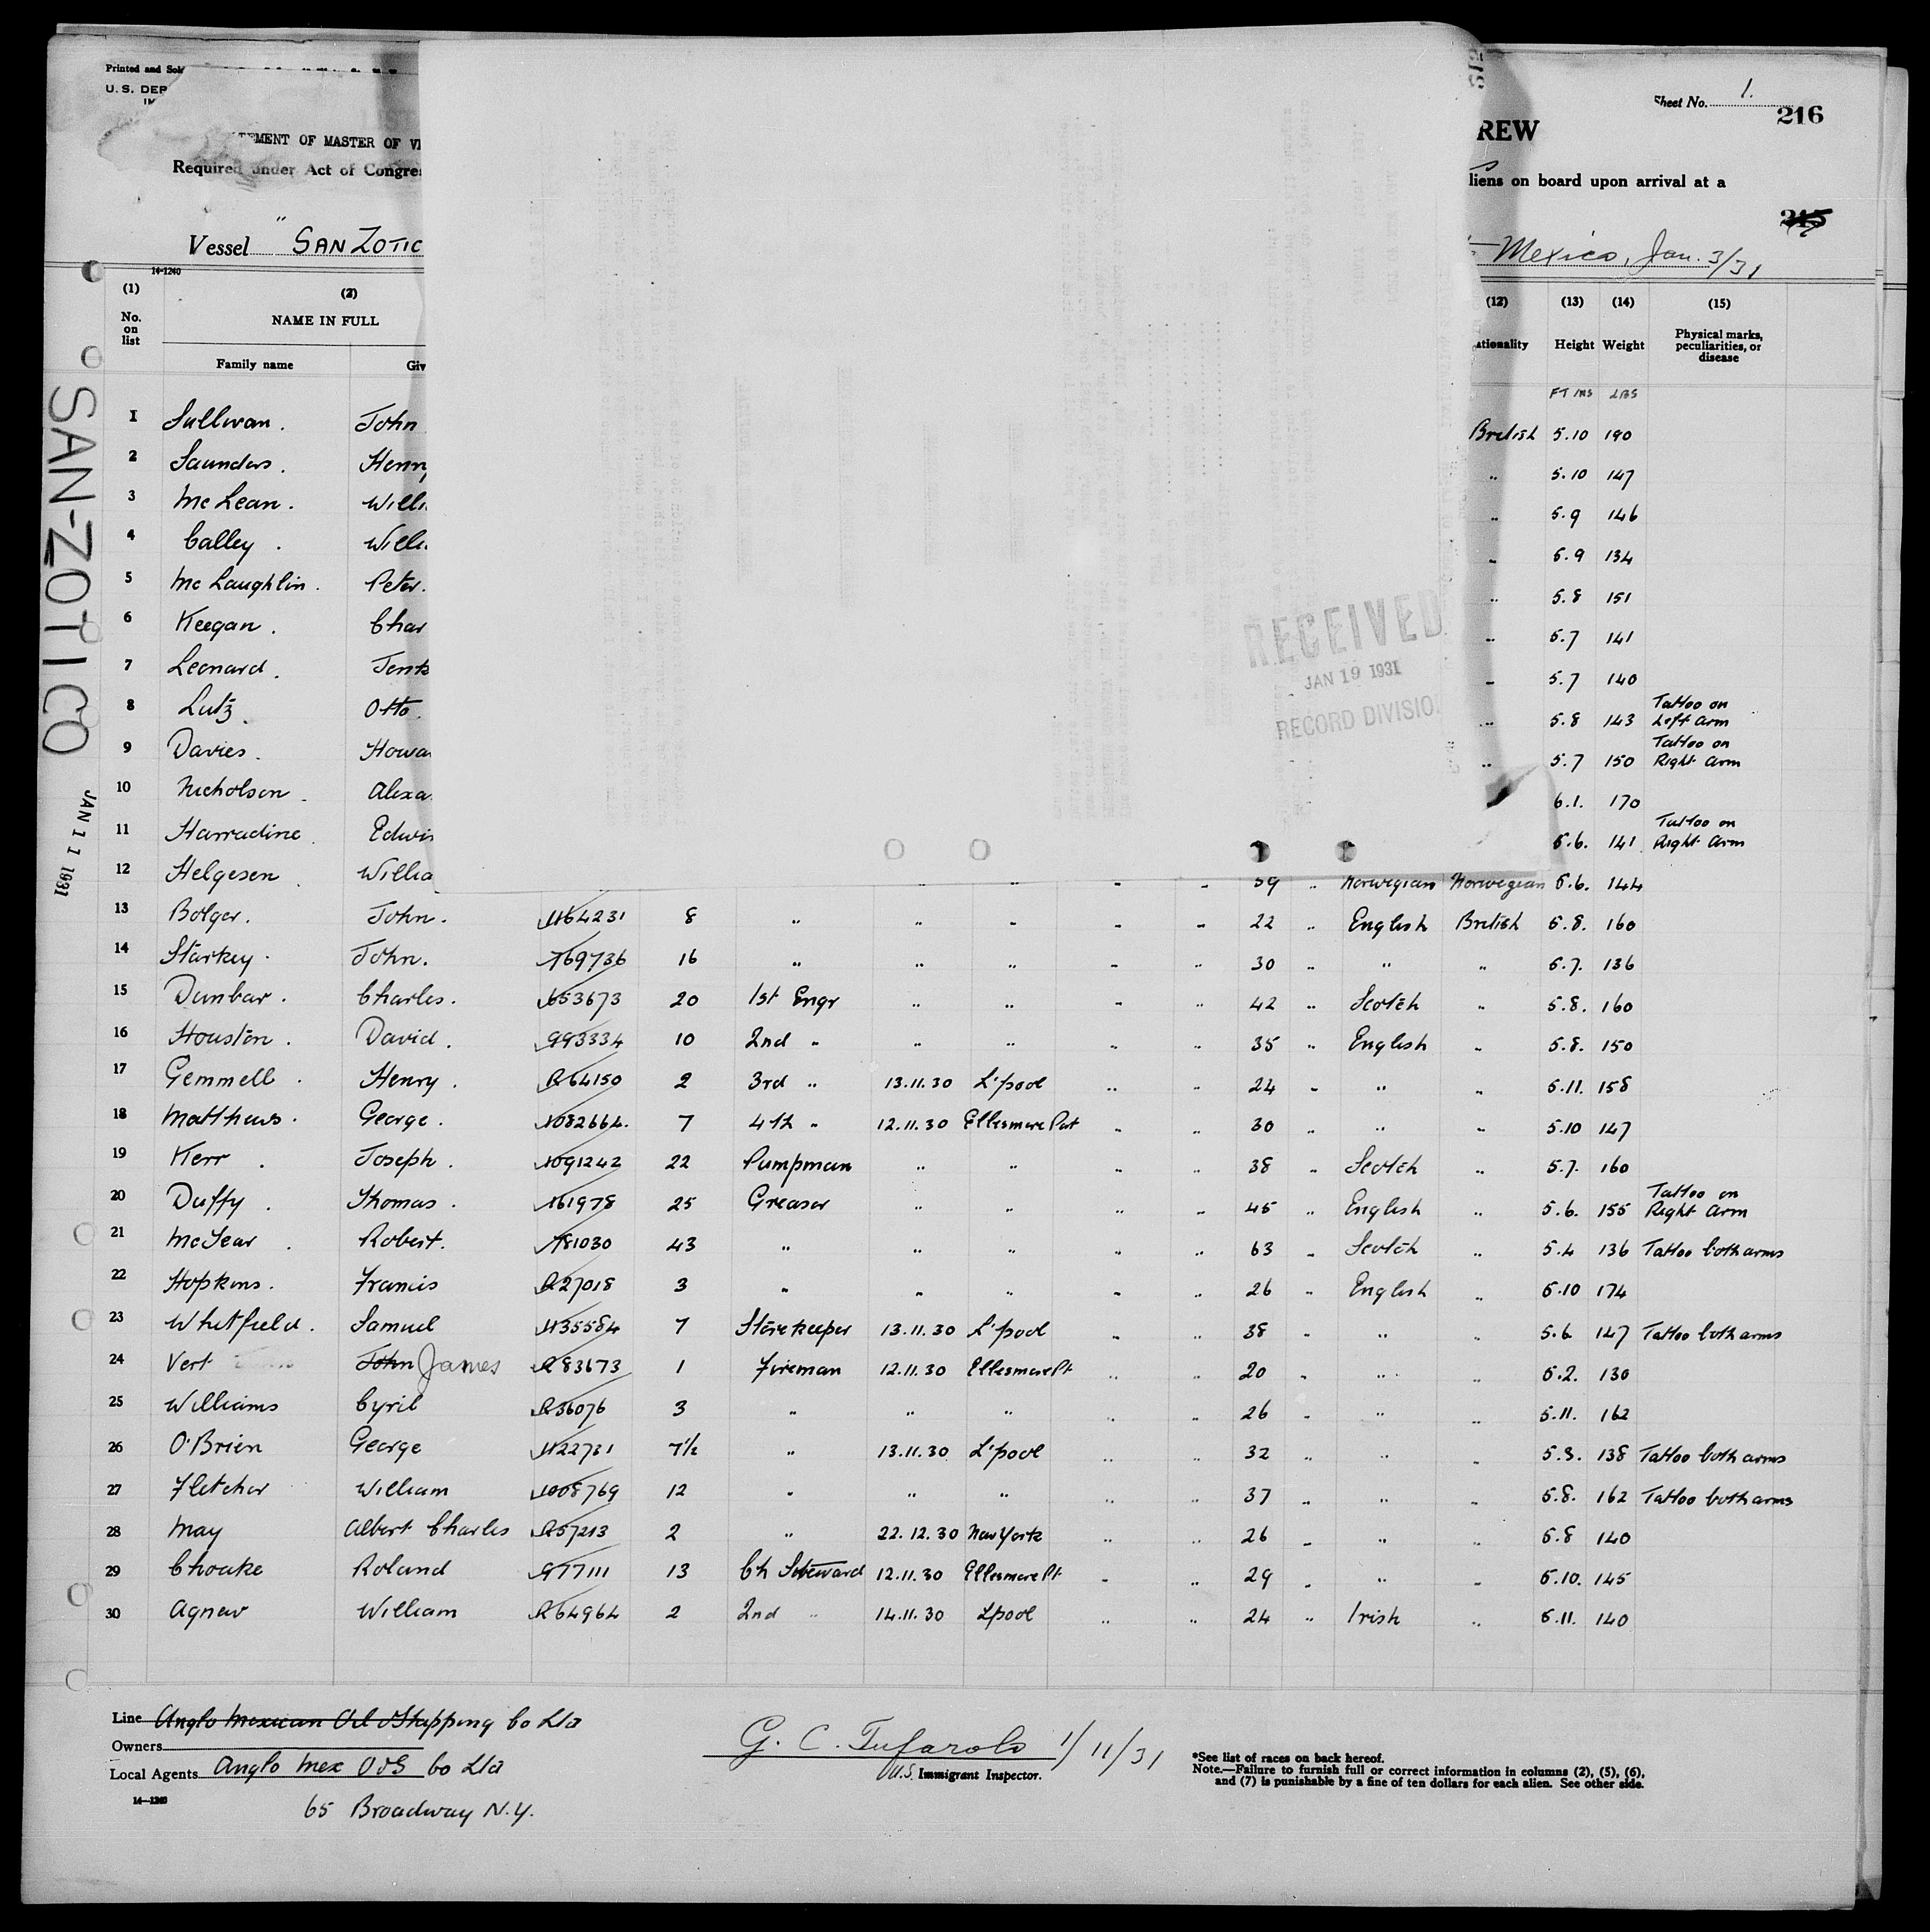 Printed and
U. S. DEP
MENT OF MASTER OF
Required under Act of Congre
Vessel "SAN ZOTIC
14-1240
Sheet No. 1.
216
REW
liens on board upon arrival at a
215
Mexico, Jan. 3/31
SAN-ZOTICO
JAN 11 1931
RECEIVED
JAN 19 1931
RECORD DIVISIO
(1) (2) (12) (13) (14) (15)
No. on list NAME IN FULL ationality Height Weight Physical marks, peculiarities, or disease
Family name Giv
FT INS LBS
1 Sullivan. John British 5.10 190
2 Saunders. Henry " 5.10 147
3 McLean. Willi " 5.9 146
4 Calley. Willi " 5.9 134
5 McLaughlin. Peter. " 5.8 151
6 Keegan. Char " 5.7 141
7 Leonard. Jenk " 5.7 140
8 Lutz. Otto. " 5.8 143 Tattoo on Left arm
9 Davies. Howa " 5.7 150 Tattoo on Right arm
10 Nicholson. Alexa 6.1. 170
11 Harradine. Edwi 5.6. 141 Tattoo on Right arm
12 Helgesen. Willia " " " " 59 " Norwegian Norwegian 5.6. 144
13 Bolger. John. 1164231 8 " " " " " 22 " English British 5.8. 160
14 Starkey. John. 769736 16 " " " " " 30 " " " 5.7. 136
15 Dunbar. Charles. 653673 20 1st Engr " " " " 42 " Scotch " 5.8. 160
16 Houston. David. 993334 10 2nd " " " " " 35 " English " 5.8. 150
17 Gemmell. Henry. R64150 2 3rd " 13.11.30 L'pool " " 24 " " " 5.11. 158
18 Matthews. George. 1082664. 7 4th " 12.11.30 Ellesmere Port " " 30 " " " 5.10 147
19 Kerr. Joseph. 1091242 22 Pumpman " " " " 38 " Scotch " 5.7. 160
20 Duffy. Thomas. 161978 25 Greaser " " " " 45 " English " 5.6. 155 Tattoo on Right arm
21 Robert. 781030 43 " " " " " 63 " Scotch " 5.4 136 Tattoo both arms
22 Hopkins. Francis R27018 3 " " " " " 26 " English " 5.10 174
23 Whitfield. Samuel 1135584 7 Storekeeper 13.11.30 L'pool " " 38 " " " 5.6 147 Tattoo both arms
24 Vert John James R83673 1 Fireman 12.11.30 Ellesmere Pt " " 20 " " " 5.2. 130
25 Williams Cyril R36076 3 " " " " " 26 " " " 5.11. 162
26 O'Brien George 1122731 7½ " 13.11.30 L'pool " " 32 " " " 5.3. 138 Tattoo both arms
27 Fletcher William 1008769 12 " " " " " 37 " " " 5.8. 162 Tattoo both arms
28 May Albert Charles R57213 2 " 22.12.30 New York " " 26 " " " 5.8 140
29 Choake Roland 977111 13 Ch Steward 12.11.30 Ellesmere Pt " " 29 " " " 5.10. 145
30 Agnew William R64964 2 2nd " 14.11.30 Lpool " " 24 " Irish " 5.11. 140
Line Anglo Mexican Oil & Shipping Co Ltd
Owners
Local Agents Anglo Mex O&S Co Ltd
14-1240
65 Broadway N.Y.
G. C. Tufarolo 1/11/31
U.S. Immigrant Inspector.
*See list of races on back hereof.
Note.—Failure to furnish full or correct information in columns (2), (5), (6),
and (7) is punishable by a fine of ten dollars for each alien. See other side.